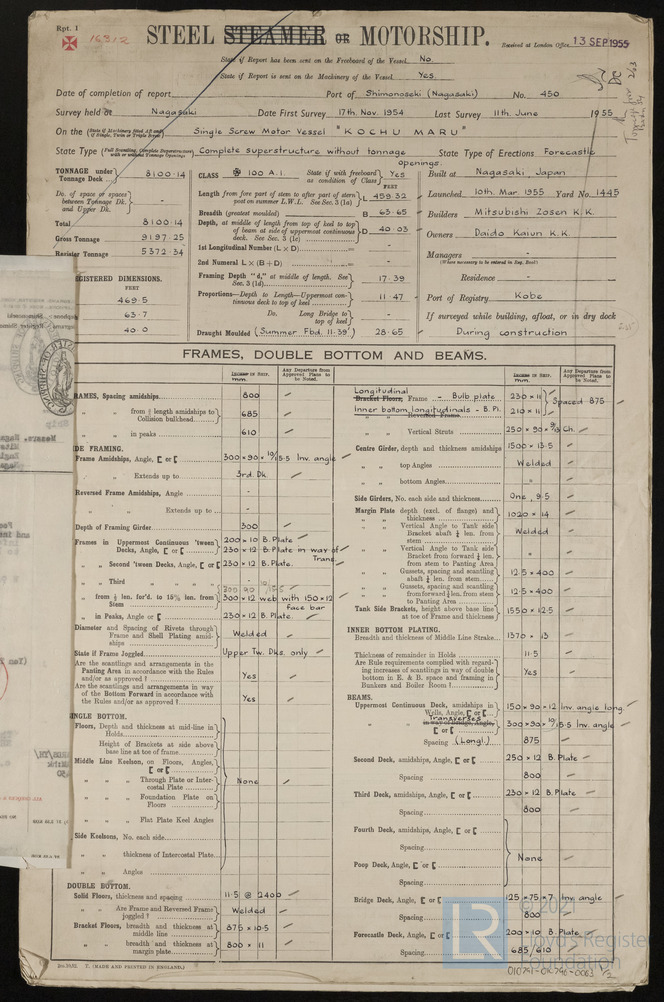 Rpt. 1
16312
STEEL STEAMER OR MOTORSHIP.
Received at London Office 13 SEP 1955
State if Report has been sent on the Freeboard of the Vessel No.
State if Report is sent on the Machinery of the Vessel Yes.
Date of completion of report Port of Shimonoseki (Nagasaki) No. 450
Survey held at Nagasaki Date First Survey 17th. Nov. 1954 Last Survey 11th. June 1955
On the (State if Machinery fitted Aft and if Single, Twin or Triple Screw) Single Screw Motor Vessel "KOCHU MARU"
State Type (Full Scantling, Complete Superstructure with or without Tonnage Openings) Complete superstructure without tonnage openings. State Type of Erections Forecastle
TONNAGE under Tonnage Deck 8100.14
Do. of space or spaces between Tonnage Dk. and Upper Dk.
Total 8100.14
Gross Tonnage 9197.25
Register Tonnage 5372.34
REGISTERED DIMENSIONS.
FEET
469.5
63.7
40.0
CLASS 100 A.I. State if with freeboard as condition of Class Yes
FEET
Length from fore part of stem to after part of stern post on summer L.W.L. See Sec. 3 (1a) L 459.32
Breadth (greatest moulded) B 63.65
Depth, at middle of length from top of keel to top of beam at side of uppermost continuous deck. See Sec. 3 (1c) D 40.03
1st Longitudinal Number (L × D) -
2nd Numeral L × (B + D) -
Framing Depth "d," at middle of length. See Sec. 3 (1d) 17.39
Proportions—Depth to Length—Uppermost continuous deck to top of keel 11.47
Do. Long Bridge to top of keel -
Draught Moulded (Summer Fbd. 11.39') 28.65
Built at Nagasaki, Japan
Launched 10th. Mar. 1955 Yard No. 1445
Builders Mitsubishi Zosen K.K.
Owners Daido Kaiun K.K.
Managers -
(Where necessary to be entered in Reg. Book)
Residence -
Port of Registry Kobe
If surveyed while building, afloat, or in dry dock
During construction
FRAMES, DOUBLE BOTTOM AND BEAMS.
INCHES IN SHIP. mm.
Any Departure from Approved Plans to be Noted.
FRAMES, Spacing amidships 800
„ „ from ⅕ length amidships to Collision bulkhead 685
„ „ in peaks 610
SIDE FRAMING.
Frame Amidships, Angle, [ or [ 300×90×10/15.5 Inv. angle
„ „ Extends up to 3rd. Dk.
Reversed Frame Amidships, Angle -
„ „ Extends up to -
Depth of Framing Girder 300
Frames in Uppermost Continuous 'tween Decks, Angle, [ or [ 200×10 B. Plate
230×12 B. Plate in way of Trans.
„ „ Second 'tween Decks, Angle, [ or [ 230×12 B. Plate.
„ „ Third „ „ „ -
„ „ from ⅕ len. for'd. to 15% len. from Stem 300×12 web with 150×12 face bar
„ „ in Peaks, Angle or [ 230×12 B. Plate.
Diameter and Spacing of Rivets through Frame and Shell Plating amidships Welded
State if Frame Joggled Upper Tw. Dks. only
Are the scantlings and arrangements in the Panting Area in accordance with the Rules and/or as approved? Yes
Are the scantlings and arrangements in way of the Bottom Forward in accordance with the Rules and/or as approved? Yes
SINGLE BOTTOM.
Floors, Depth and thickness at mid-line in Holds
Height of Brackets at side above base line at toe of frame
Middle Line Keelson, on Floors, Angles, [ or [
„ „ Through Plate or Intercostal Plate None
„ „ Foundation Plate on Floors
„ „ Flat Plate Keel Angles
Side Keelsons, No. each side
„ „ thickness of Intercostal Plate
„ „ Angles
DOUBLE BOTTOM.
Solid Floors, thickness and spacing 11.5 @ 2400
„ „ Are Frame and Reversed Frame joggled? Welded
Bracket Floors, breadth and thickness at middle line 875 × 10.5
„ „ breadth and thickness at margin plate 800 × 11
INCHES IN SHIP. mm.
Any Departure from Approved Plans to be Noted.
Longitudinal
Bracket Floors, Frame - Bulb plate 230 × 11
Inner bottom longitudinals - B. Pl. 210 × 11 Spaced 875
Reversed Frame
„ „ Vertical Struts 250×90×9/13 Ch.
Centre Girder, depth and thickness amidships 1500 × 13.5
„ „ top Angles Welded
„ „ bottom Angles "
Side Girders, No. each side and thickness One, 9.5
Margin Plate depth (excl. of flange) and thickness 1020 × 14
„ „ Vertical Angle to Tank side Bracket abaft ¼ len. from stem Welded
„ „ Vertical Angle to Tank side Bracket from forward ¼ len. from stem to Panting Area "
„ „ Gussets, spacing and scantling abaft ¼ len. from stem 12.5 × 400
„ „ Gussets, spacing and scantling from forward ¼ len. from stem to Panting Area 12.5 × 400
Tank Side Brackets, height above base line at toe of Frame and thickness 1550 × 12.5
INNER BOTTOM PLATING.
Breadth and thickness of Middle Line Strake 1370 × 13
Thickness of remainder in Holds 11.5
Are Rule requirements complied with regarding increases of scantling in way of double bottom in E. & B. space and framing in Bunkers and Boiler Room? Yes
BEAMS.
Uppermost Continuous Deck, amidships in Wells, Angle, [ or [ 150×90×12 Inv. angle long.
Transverses
in way of Bridge, Angle, [ or [ 300×90×10/15.5 Inv. angle
Spacing (Longl.) 875
Second Deck, amidships, Angle, [ or [ 250×12 B. Plate
Spacing 800
Third Deck, amidships, Angle, [ or [ 230×12 B. Plate
Spacing 800
Fourth Deck, amidships, Angle, [ or [
Spacing None
Poop Deck, Angle, [ or [
Spacing
Bridge Deck, Angle, [ or [ 125×75×7 Inv. angle
Spacing 800
Forecastle Deck, Angle, [ or [ 200×10 B. Plate
Spacing 685/610
(MADE AND PRINTED IN ENGLAND.)
LR
© 2021
Lloyd's Register
Foundation
010791-010796-0063 1/2